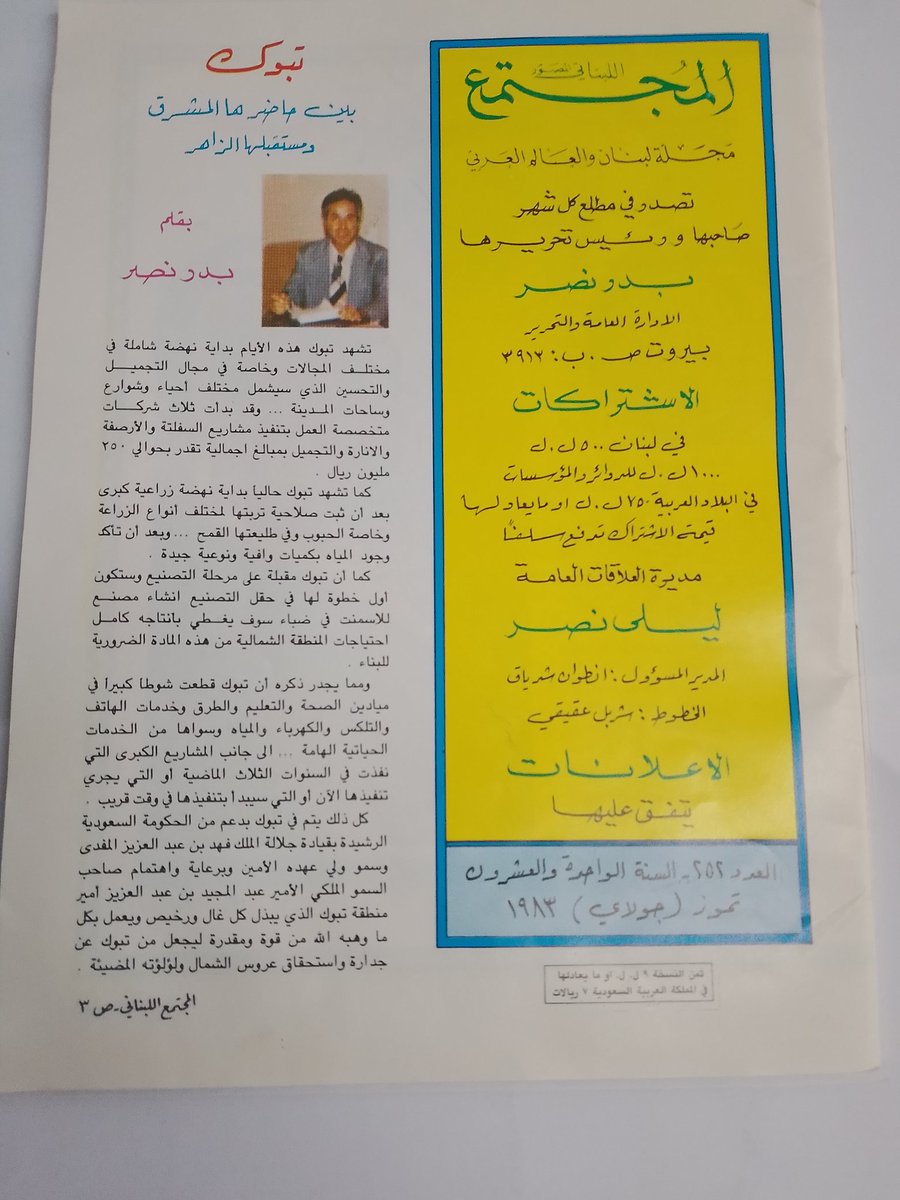 المجتمع
اللبناني المصور
مجلة لبنان والعالم العربي
تصدر في مطلع كل شهر
صاحبها ورئيس تحريرها
بدر نصر
الادارة العامة والتحرير
بيروت ص.ب: ٣٩١٣
الاشتراكات
في لبنان ٥٠٠ ل.ل
١٠٠٠ ل.ل للدوائر والمؤسسات
في البلاد العربية ٧٥٠ ل.ل او مايعادلها
قيمة الاشتراك تدفع سلفاً
مديرة العلاقات العامة
ليلى نصر
المدير المسؤول: انطوان شدياق
الخطوط: شربل عقيقي
الاعلانات
يتفق عليها
العدد ٢٥٢ - السنة الواحدة والعشرون
تموز (جولاي) ١٩٨٣
ثمن النسخة ٩ ل. ل. او ما يعادلها
في المملكة العربية السعودية ٧ ريالات
تبوك
بين حاضرها المشرق
ومستقبلها الزاهر
بقلم
بدر نصر
تشهد تبوك هذه الأيام بداية نهضة شاملة في
مختلف المجالات وخاصة في مجال التجميل
والتحسين الذي سيشمل مختلف أحياء وشوارع
وساحات المدينة ... وقد بدأت ثلاث شركات
متخصصة العمل بتنفيذ مشاريع السفلتة والأرصفة
والانارة والتجميل بمبالغ اجمالية تقدر بحوالي ٢٥٠
مليون ريال .
كما تشهد تبوك حالياً بداية نهضة زراعية كبرى
بعد أن ثبت صلاحية تربتها لمختلف أنواع الزراعة
وخاصة الحبوب وفي طليعتها القمح ... وبعد أن تأكد
وجود المياه بكميات وافية ونوعية جيدة .
كما أن تبوك مقبلة على مرحلة التصنيع وستكون
أول خطوة لها في حقل التصنيع انشاء مصنع
للاسمنت في ضباء سوف يغطي بانتاجه كامل
احتياجات المنطقة الشمالية من هذه المادة الضرورية
للبناء .
ومما يجدر ذكره أن تبوك قطعت شوطاً كبيراً في
ميادين الصحة والتعليم والطرق وخدمات الهاتف
والتلكس والكهرباء والمياه وسواها من الخدمات
الحياتية الهامة ... الى جانب المشاريع الكبرى التي
نفذت في السنوات الثلاث الماضية أو التي يجري
تنفيذها الآن أو التي سيبدأ بتنفيذها في وقت قريب .
كل ذلك يتم في تبوك بدعم من الحكومة السعودية
الرشيدة بقيادة جلالة الملك فهد بن عبد العزيز المفدى
وسمو ولي عهده الأمين وبرعاية واهتمام صاحب
السمو الملكي الأمير عبد المجيد بن عبد العزيز أمير
منطقة تبوك الذي يبذل كل غال ورخيص ويعمل بكل
ما وهبه الله من قوة ومقدرة ليجعل من تبوك عن
جدارة واستحقاق عروس الشمال ولؤلؤته المضيئة .
المجتمع اللبناني - ص ٣